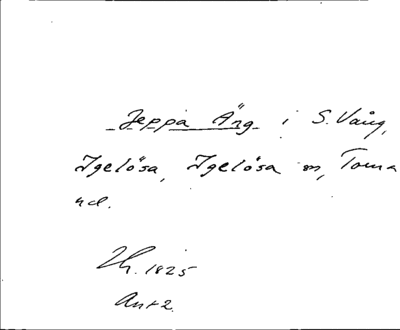 Jeppa Äng i S. Vång,
Igelösa, Igelösa sn, Torna
hd.
1825
Ant 2.